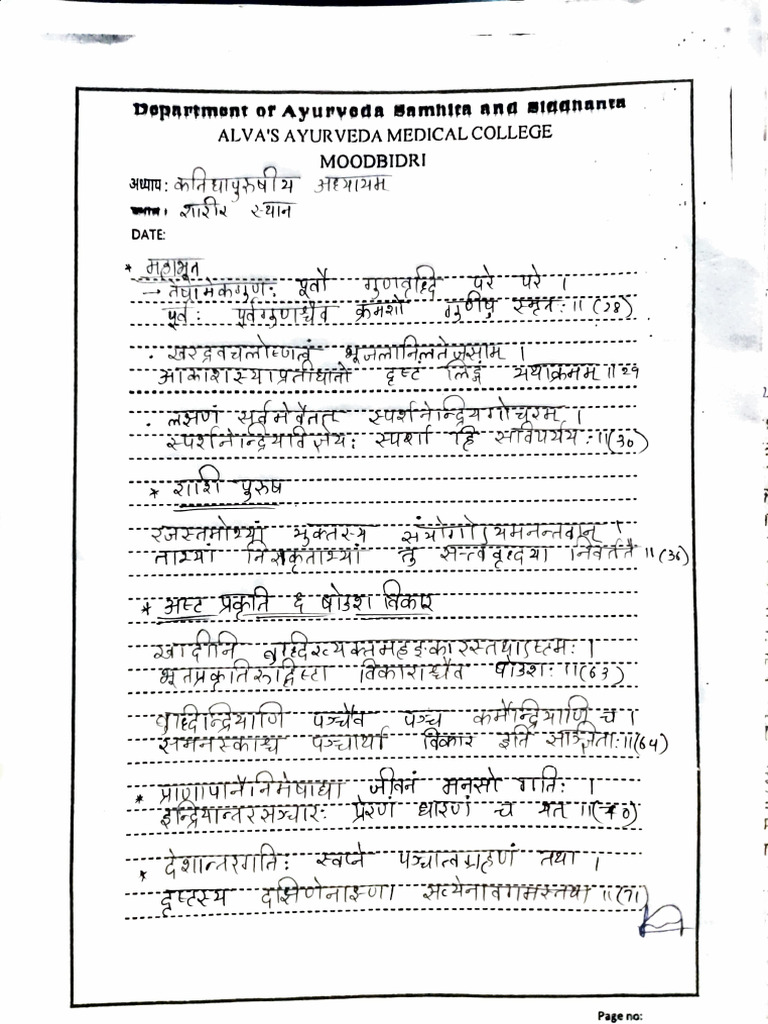 Department of Ayurveda Samhita and Siddhanta
ALVA'S AYURVEDA MEDICAL COLLEGE
MOODBIDRI
अध्याय: कतिधापुरुषीय अध्यायम
स्थान: शारीर स्थान
DATE:
* महाभूत
→ तेषामेकगुणः पूर्वो गुणवृद्दि परे परे ।
पूर्वः पूर्वगुणश्चैव क्रमशो गुणीषु स्मृतः ॥ (28)
. खरद्रवचलोष्णत्वं भूजलानिलतेजसाम ।
आकाशस्याप्रतीघातो दृष्ट लिङ्गं यथाक्रमम ॥ 29
. लक्षणं सर्वमेवैतत स्पर्शनेन्द्रियगोचरम ।
स्पर्शनेन्द्रियविज्ञेयः स्पर्शो हि सविपर्ययः ॥ (30)
* राशि पुरुष
रजस्तमोभ्यां युक्तस्य संयोगोऽयमनन्तवान् ।
ताभ्यां निराकृताभ्यां तु सत्त्ववृद्दया निवर्तते ॥ (36)
* अष्ट प्रकृति & षोडश विकार
खादीनि बुद्दिरव्यक्तमहङ्कारस्तथाऽष्टमः ।
भूतप्रकृतिरुद्दिष्टा विकाराश्चैव षोडशः ॥ (63)
बुद्दिन्द्रियाणि पञ्चैव पञ्च कर्मेन्द्रियाणि च ।
समनस्काश्च पञ्चार्था विकार इति सञ्ज्ञिताः ॥ (64)
* प्राणापानैनिमेषाद्या जीवनं मनसो गतिः ।
इन्द्रियान्तरसञ्चारः प्रेरणं धारणं च यत् ॥ (70)
* देशान्तरगतिः स्वप्ने पञ्चात्वग्रहणं तथा ।
दृष्टस्य दक्षिणेनाक्ष्णा सव्येनावगमस्तथा ॥ (71)
Page no: